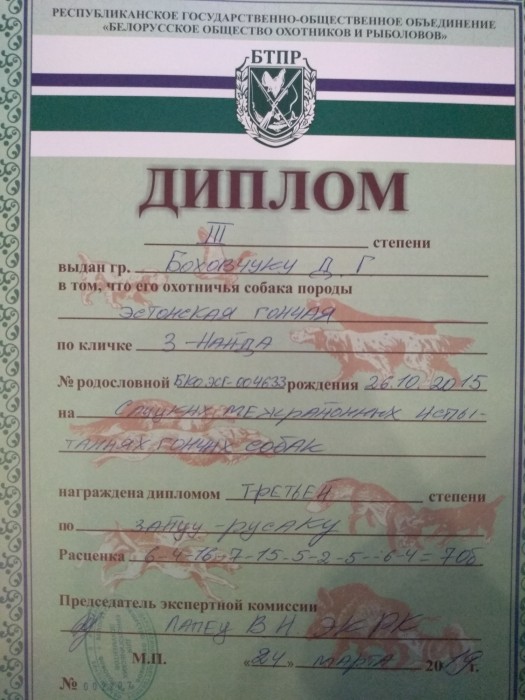 РЕСПУБЛИКАНСКОЕ ГОСУДАРСТВЕННО-ОБЩЕСТВЕННОЕ ОБЪЕДИНЕНИЕ
«БЕЛОРУССКОЕ ОБЩЕСТВО ОХОТНИКОВ И РЫБОЛОВОВ»
БТПР
ДИПЛОМ
III степени
выдан гр. Боховчуку Д. Г
в том, что его охотничья собака породы
эстонская гончая
по кличке З-Найда
№ родословной БКО.ЭГ-004633 рождения 26.10.2015
на Слуцких межрайонных испы-
таниях гончих собак
награждена дипломом третьей степени
по зайцу-русаку
Расценка 6-4-16-7-15-5-2-5--6-4=70б
Председатель экспертной комиссии
Лапец В Н ЭКРК
М.П. «24» марта 2019 г.
№